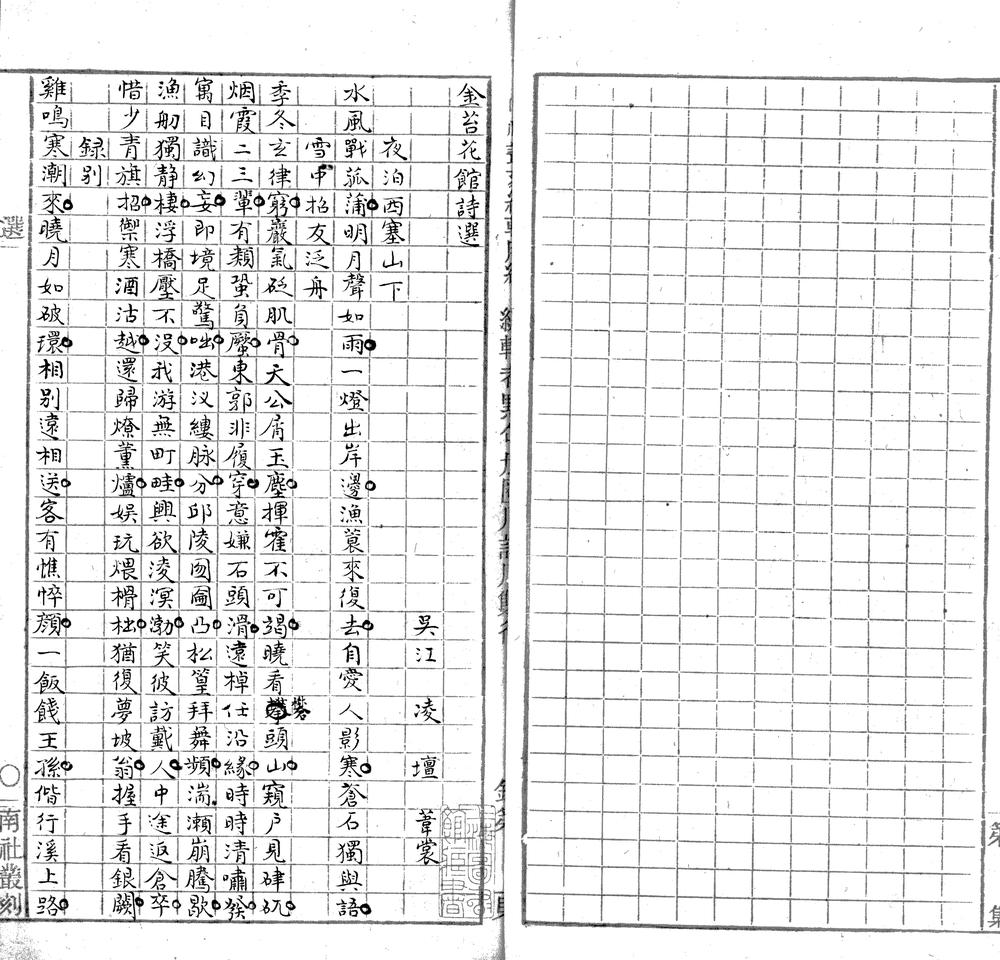 金苔花館詩選
吳江 凌壇 葦裳
夜泊西塞山下
水風戰孤蒲明月聲如雨一燈出岸邊漁蓑來復去自愛人影寒蒼石獨與語
雪中招友泛舟
季冬玄律窮嚴氣砭肌骨天公屑玉塵揮霍不可竭曉看頭山窺戶見硉矹
烟霞二三輩有類蛩負蟨東郭非履穿意嫌石頭滑遠棹任沿緣時時清嘯發
寓目識幻妄即境足驚咄港汊縷脉分邱陵囫圇凸松篁拜舞頻湍瀨崩騰歇
漁舠獨靜棲浮橋壓不沒我游無町畦興欲淩溟渤笑彼訪戴人中途返倉卒
惜少青旗招禦寒酒沽越還歸燎薰爐娛玩煨榾柮猶復夢坡翁握手看銀闕
録别
雞鳴寒潮來曉月如破環相别遠相送客有憔悴顏一飯餞王孫偕行溪上路
選
〇
南社叢刻
第
集